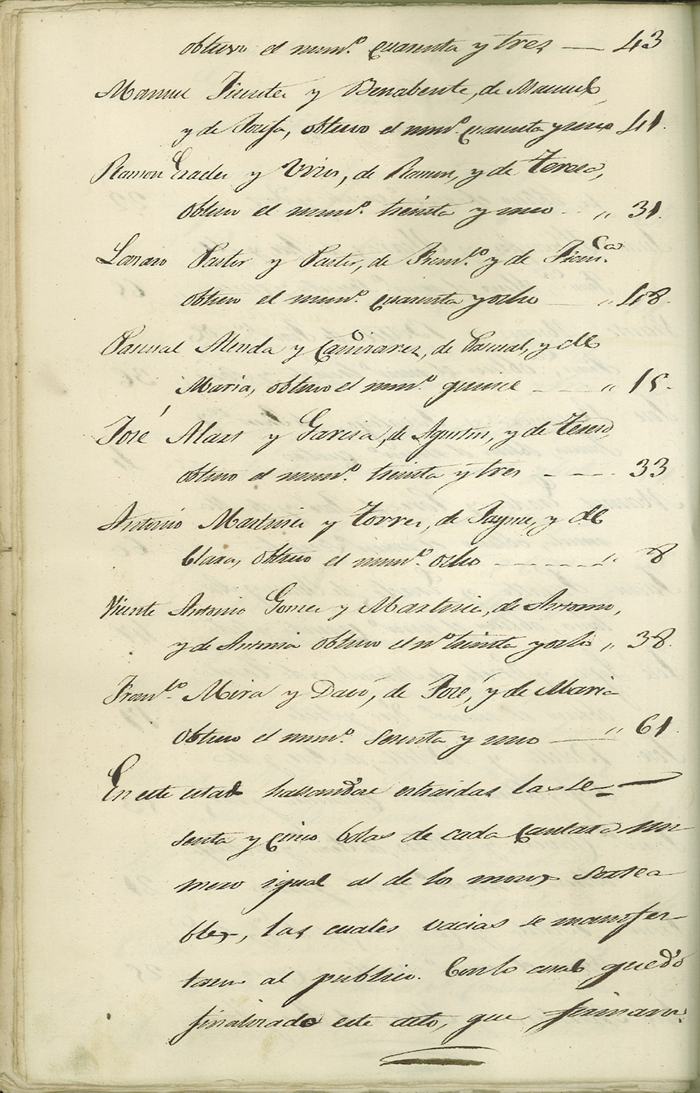 obtuvo el num.º cuarenta y tres — 43
Manuel Fuentes y Benabente, de Manuel,
y de Josefa, obtuvo el num.º cuarenta y uno 41.
Ramon y de Ramon, y de Teresa,
obtuvo el num.º treinta y uno „ 31.
Pastor y Pastor, de Fran.co y de Fran.ca
obtuvo el num.º cuarenta y ocho „ 48
Pascual y de Pascual, y de
Maria, obtuvo el num.º quince — „ 15.
José y Garcia, de Agustin, y de
obtuvo el num.º treinta y tres — 33
Antonio Martinez y Torres, de Jayme, y de
Clara, obtuvo el num.º ocho — „ 8
Vicente Antonio Gomez y Martinez, de Antonio,
y de Antonia obtuvo el nº treinta y ocho „ 38.
Fran.co Mira y de José, y de Maria
obtuvo el num.º sesenta y uno — „ 61.
En este estado hallandose estraidas las se-
senta y cinco bolas de cada cantaro nu-
mero igual al de los mozos sortea
bles, las cuales vacias se manifes-
taron al publico. Con lo cual quedó
finalizado este acto, que firman.